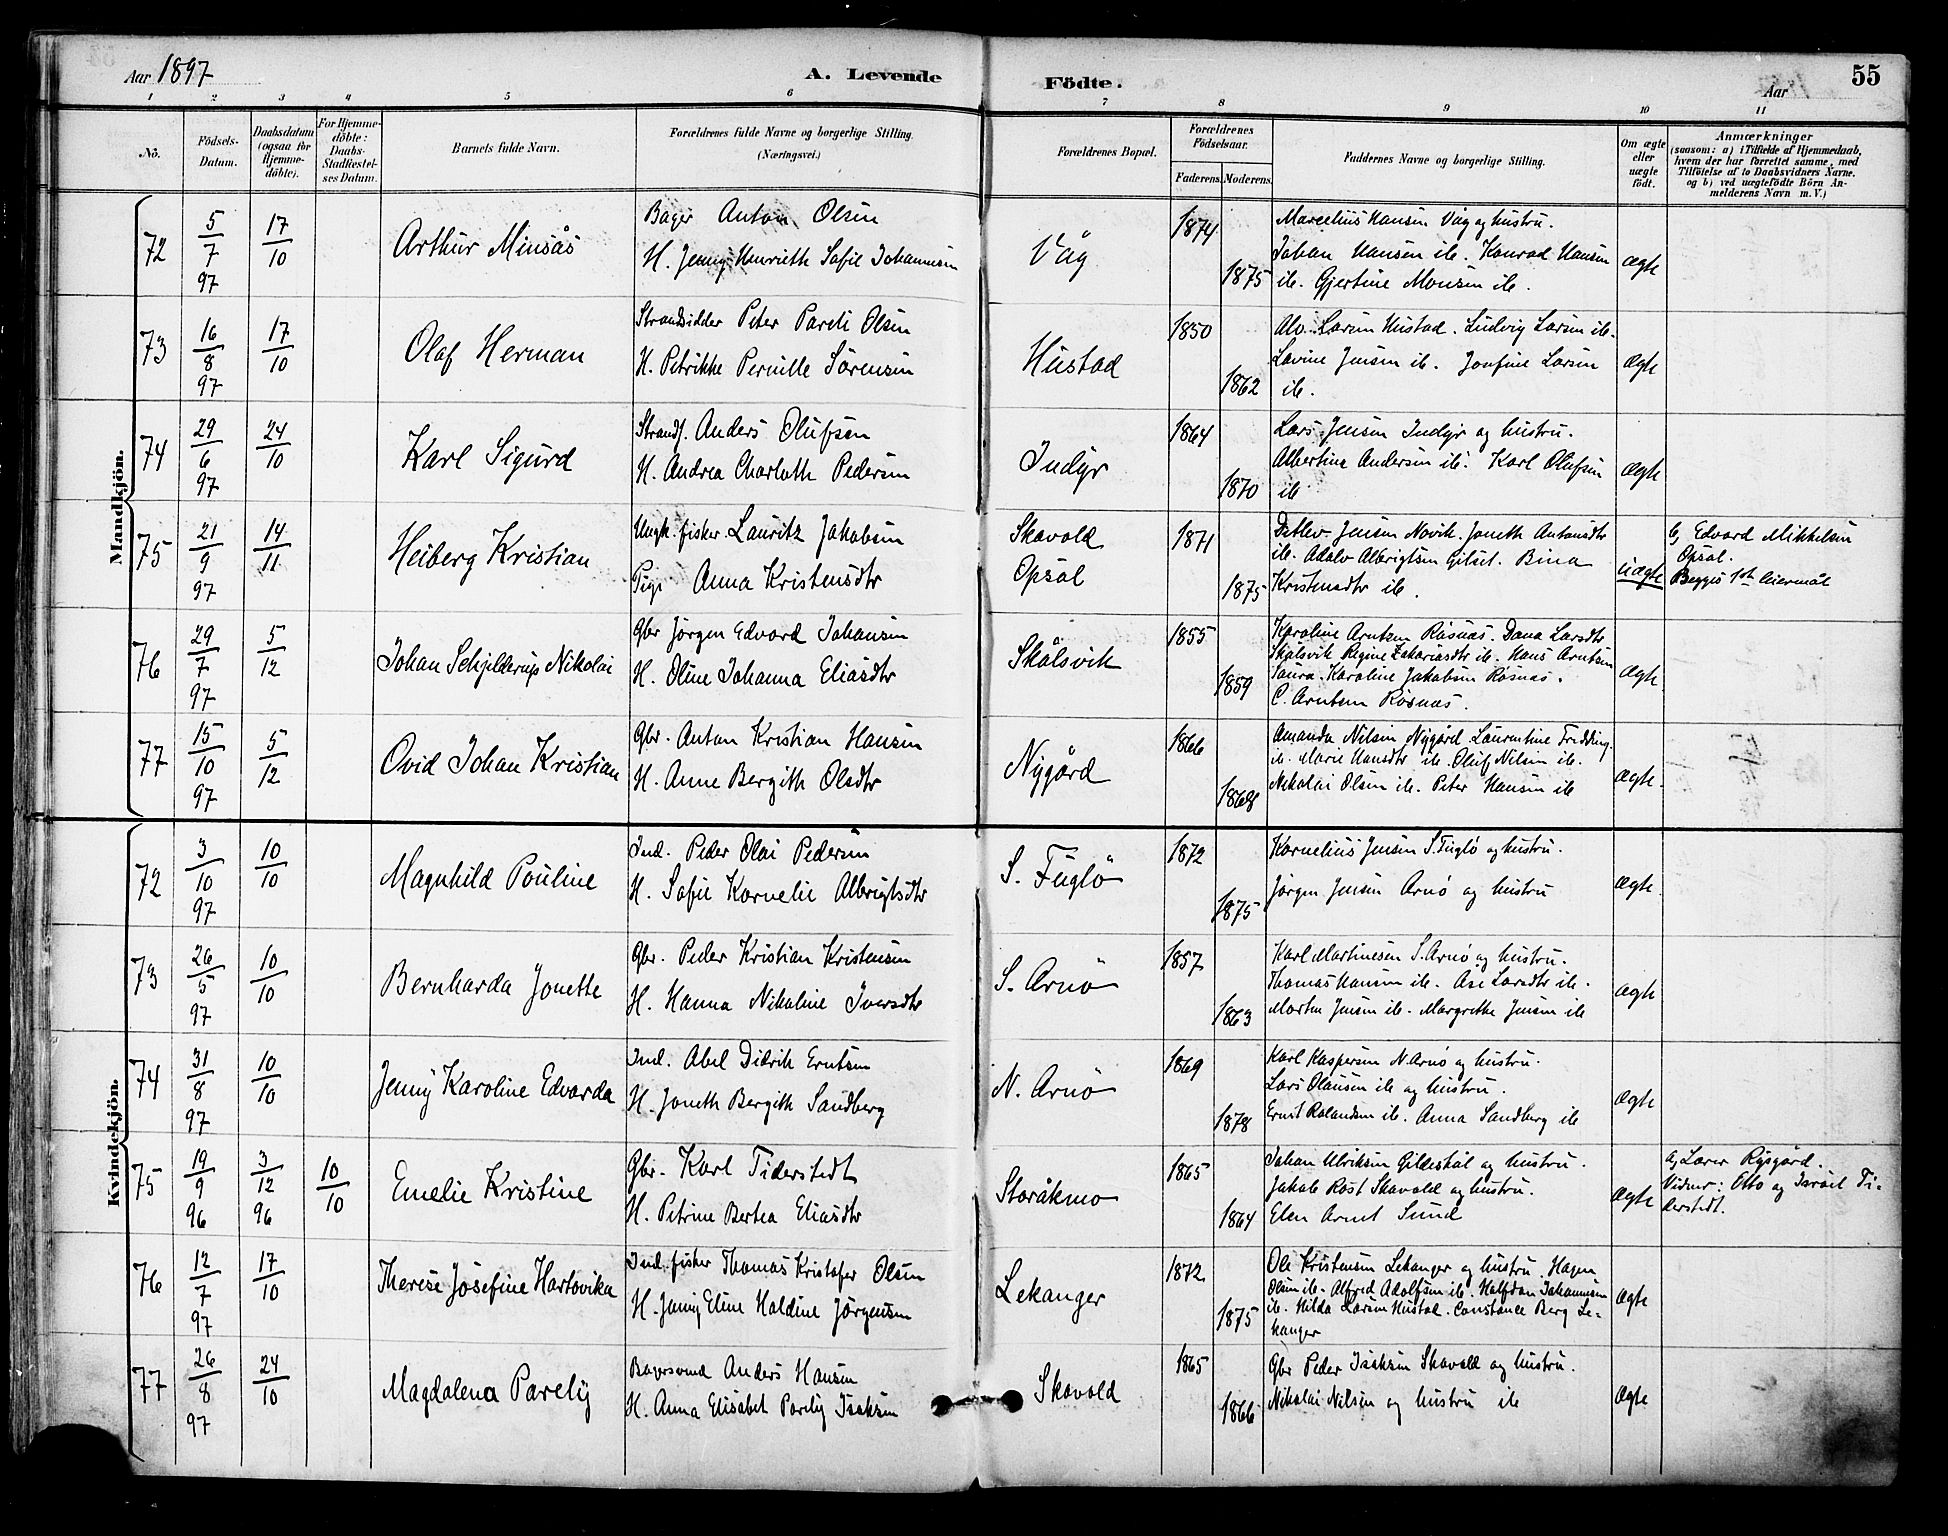 Aar 1897
A. Levende Födte.
Aar
55
1 2 3 4 5 6 7 8 9 10 11
No.
Födsels-Datum.
Daabsdatum (ogsaa for Hjemme-döbte).
For Hjemme-döbte: Daabs-Stadfæstel-ses Datum.
Barnets fulde Navn.
Forældrenes fulde Navne og borgerlige Stilling. (Næringsvei.)
Forældrenes Bopæl.
Forældrenes Födselsaar.
Faderens. Moderens.
Faddernes Navne og borgerlige Stilling.
Om ægte eller uægte födt.
Anmærkninger
(saasom: a) i Tilfælde af Hjemmedaab,
hvem der har forrettet samme, med
Tilföielse af to Daabsvidners Navne.
og b) ved uægtefödte Börn An-
melderens Navn m. V.)
Mandkjön.
72 5/7 97 17/10 Arthur Minsås
Bager Anton Olsen
H. Jenny Henriette Sofie Johannesen
Våg 1874 1875
Marcelius Hansen Våg og hustru.
Johan Hansen ib. Konrad Hansen
ib. Gjertine Monsen ib.
Ægte
73 16/8 97 17/10 Olaf Herman
Strandsidder Peter Pareli Olsen
H. Petrikke Pernille Sörensen
Hustad 1850 1862
Alv. Larsen Hustad. Ludvig Larsen ib.
Lavine Jensen ib. Jonfine Larsen
ib.
Ægte
74 29/6 97 24/10 Karl Sigurd
Strands. Anders Olufsen
H. Andrea Charlotte Pedersen
Indyr 1864 1870
Lars Jensen Indyr og hustru.
Albertine Andersen ib. Karl Olufsen
ib
Ægte
75 21/9 97 14/11 Heiberg Kristian
Ungk. fisker. Lauritz Jakobsen
Pige Anna Kristensdtr
Skavold
Opsal 1871 1875
Detlev Jensen Novik. Jonette Antonsdtr
ib. Adolv Albrigtsen Gilset. Bina
Kristensdtr ib.
Uægte
b, Edvard Mikkelsen
Opsal.
Begges 1ste leiermål
76 29/7 97 5/12 Johan Schjelderup Nikolai
Gbr Jörgen Edvard Johansen
H. Oline Johanna Eliasdtr
Skålsvik 1855 1859
Karoline Arntsen Røsnæs. Dana Larsdtr
Skålsvik Regine Zakariasdtr ib. Hans Arntsen
Saura. Karoline Jakobsen Røsnæs.
C. Arntsen Røsnæs.
Ægte
77 15/10 97 5/12 Ovid Johan Kristian
Gbr. Anton Kristian Hansen
H. Anne Bergith Olsdtr
Nygård 1866 1868
Amanda Nilsen Nygård Laurentine
ib. Marie Hansdtr ib. Oluf Nilsen ib.
Nikolai Olsen ib. Peter Hansen ib
Ægte.
Kvindekjön.
72 3/10 97 10/10 Magnhild Pouline
Ind. Peder Olai Pedersen
H. Sofie Kornelie Albrigtsdtr
S. Fuglö 1872 1875
Kornelius Jensen S. Fuglø og hustru.
Jørgen Jensen Arnö og hustru
Ægte
73 26/5 97 10/10 Bernharda Jonette
Gbr. Peder Kristian Kristensen
H. Hanna Nikoline Iversdtr
S. Arnö 1857 1863
Karl Martinesen S. Arnø og hustru.
Thomas Hansen ib. Ase Larsdtr ib.
Morten Jensen ib. Margrethe Jensen ib
Ægte
74 31/8 97 10/10 Jenny Karoline Edvarda
Ind. Abel Didrik Erntsen
H. Jonette Bergith Sandberg
N. Arnö 1869 1878
Karl Kaspersen N. Arnø og hustru.
Lars Olausen ib og hustru.
Ernst Rolandsen ib. Anna Sandberg ib
Ægte
75 19/9 96 3/12 96 10/10 Emelie Kristine
Gbr. Karl Tiderstedt
H. Petrine Bertea Eliasdtr
Storåkmo 1865 1864
Johan Ulriksen Gildeskål og hustru.
Jakob Rost Skavold og hustru.
Elen Arnt Sund
Ægte
a, Lærer Rysgård.
Vidner: Otto og Israel Ti-
derstedt.
76 12/7 97 17/10 Therese Josefine Hartovika
Ind. fisker Thomas Kristofer Olsen
H. Jenny Eline Haldine Jørgensen
Lekanger 1872 1875
Ole Kristensen Lekanger og hustru. Hagen
Olsen ib. Alfred Adolfsen ib. Halfdan Johannesen
ib. Hilda Larsen Hustad. Constance Berg Le-
kanger
Ægte
77 26/8 97 24/10 Magdalena Parely
Bagersvend Anders Hansen
H. Anna Elisabet Parely Isaksen
Skavold 1865 1866
Gbr Peder Isaksen Skavold og hustru.
Nikolai Nilsen og hustru ib
Ægte